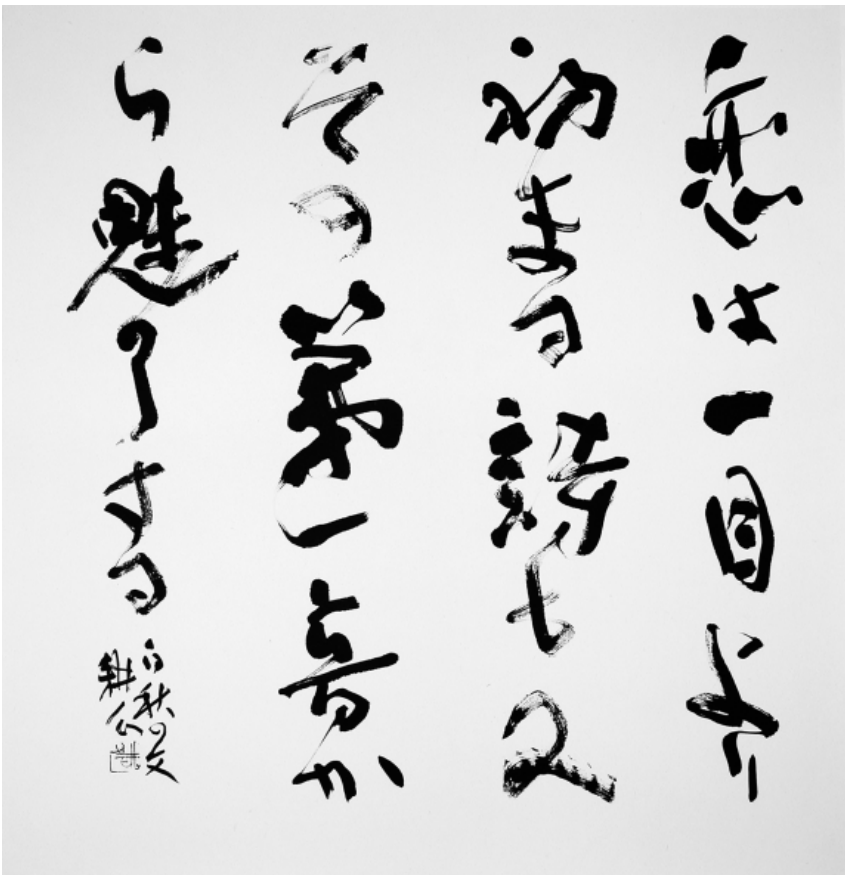 恋は一目より
初まる詩も又
その第一音か
ら魅了する
白秋の文
耕人